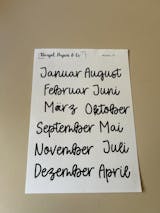 Januar August
Februar Juni
März Oktober
September Mai
November Juli
Dezember April